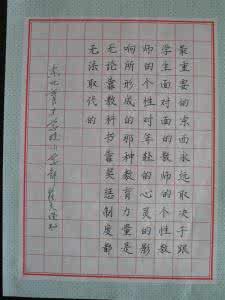 最重要的东西永远取决于跟
学生面对面的教师的个性教
师的个性对年轻的心灵的影
响所形成的那种教育力量是
无论靠教科书靠奖惩制度都
无法取代的
东北育才学校小学部